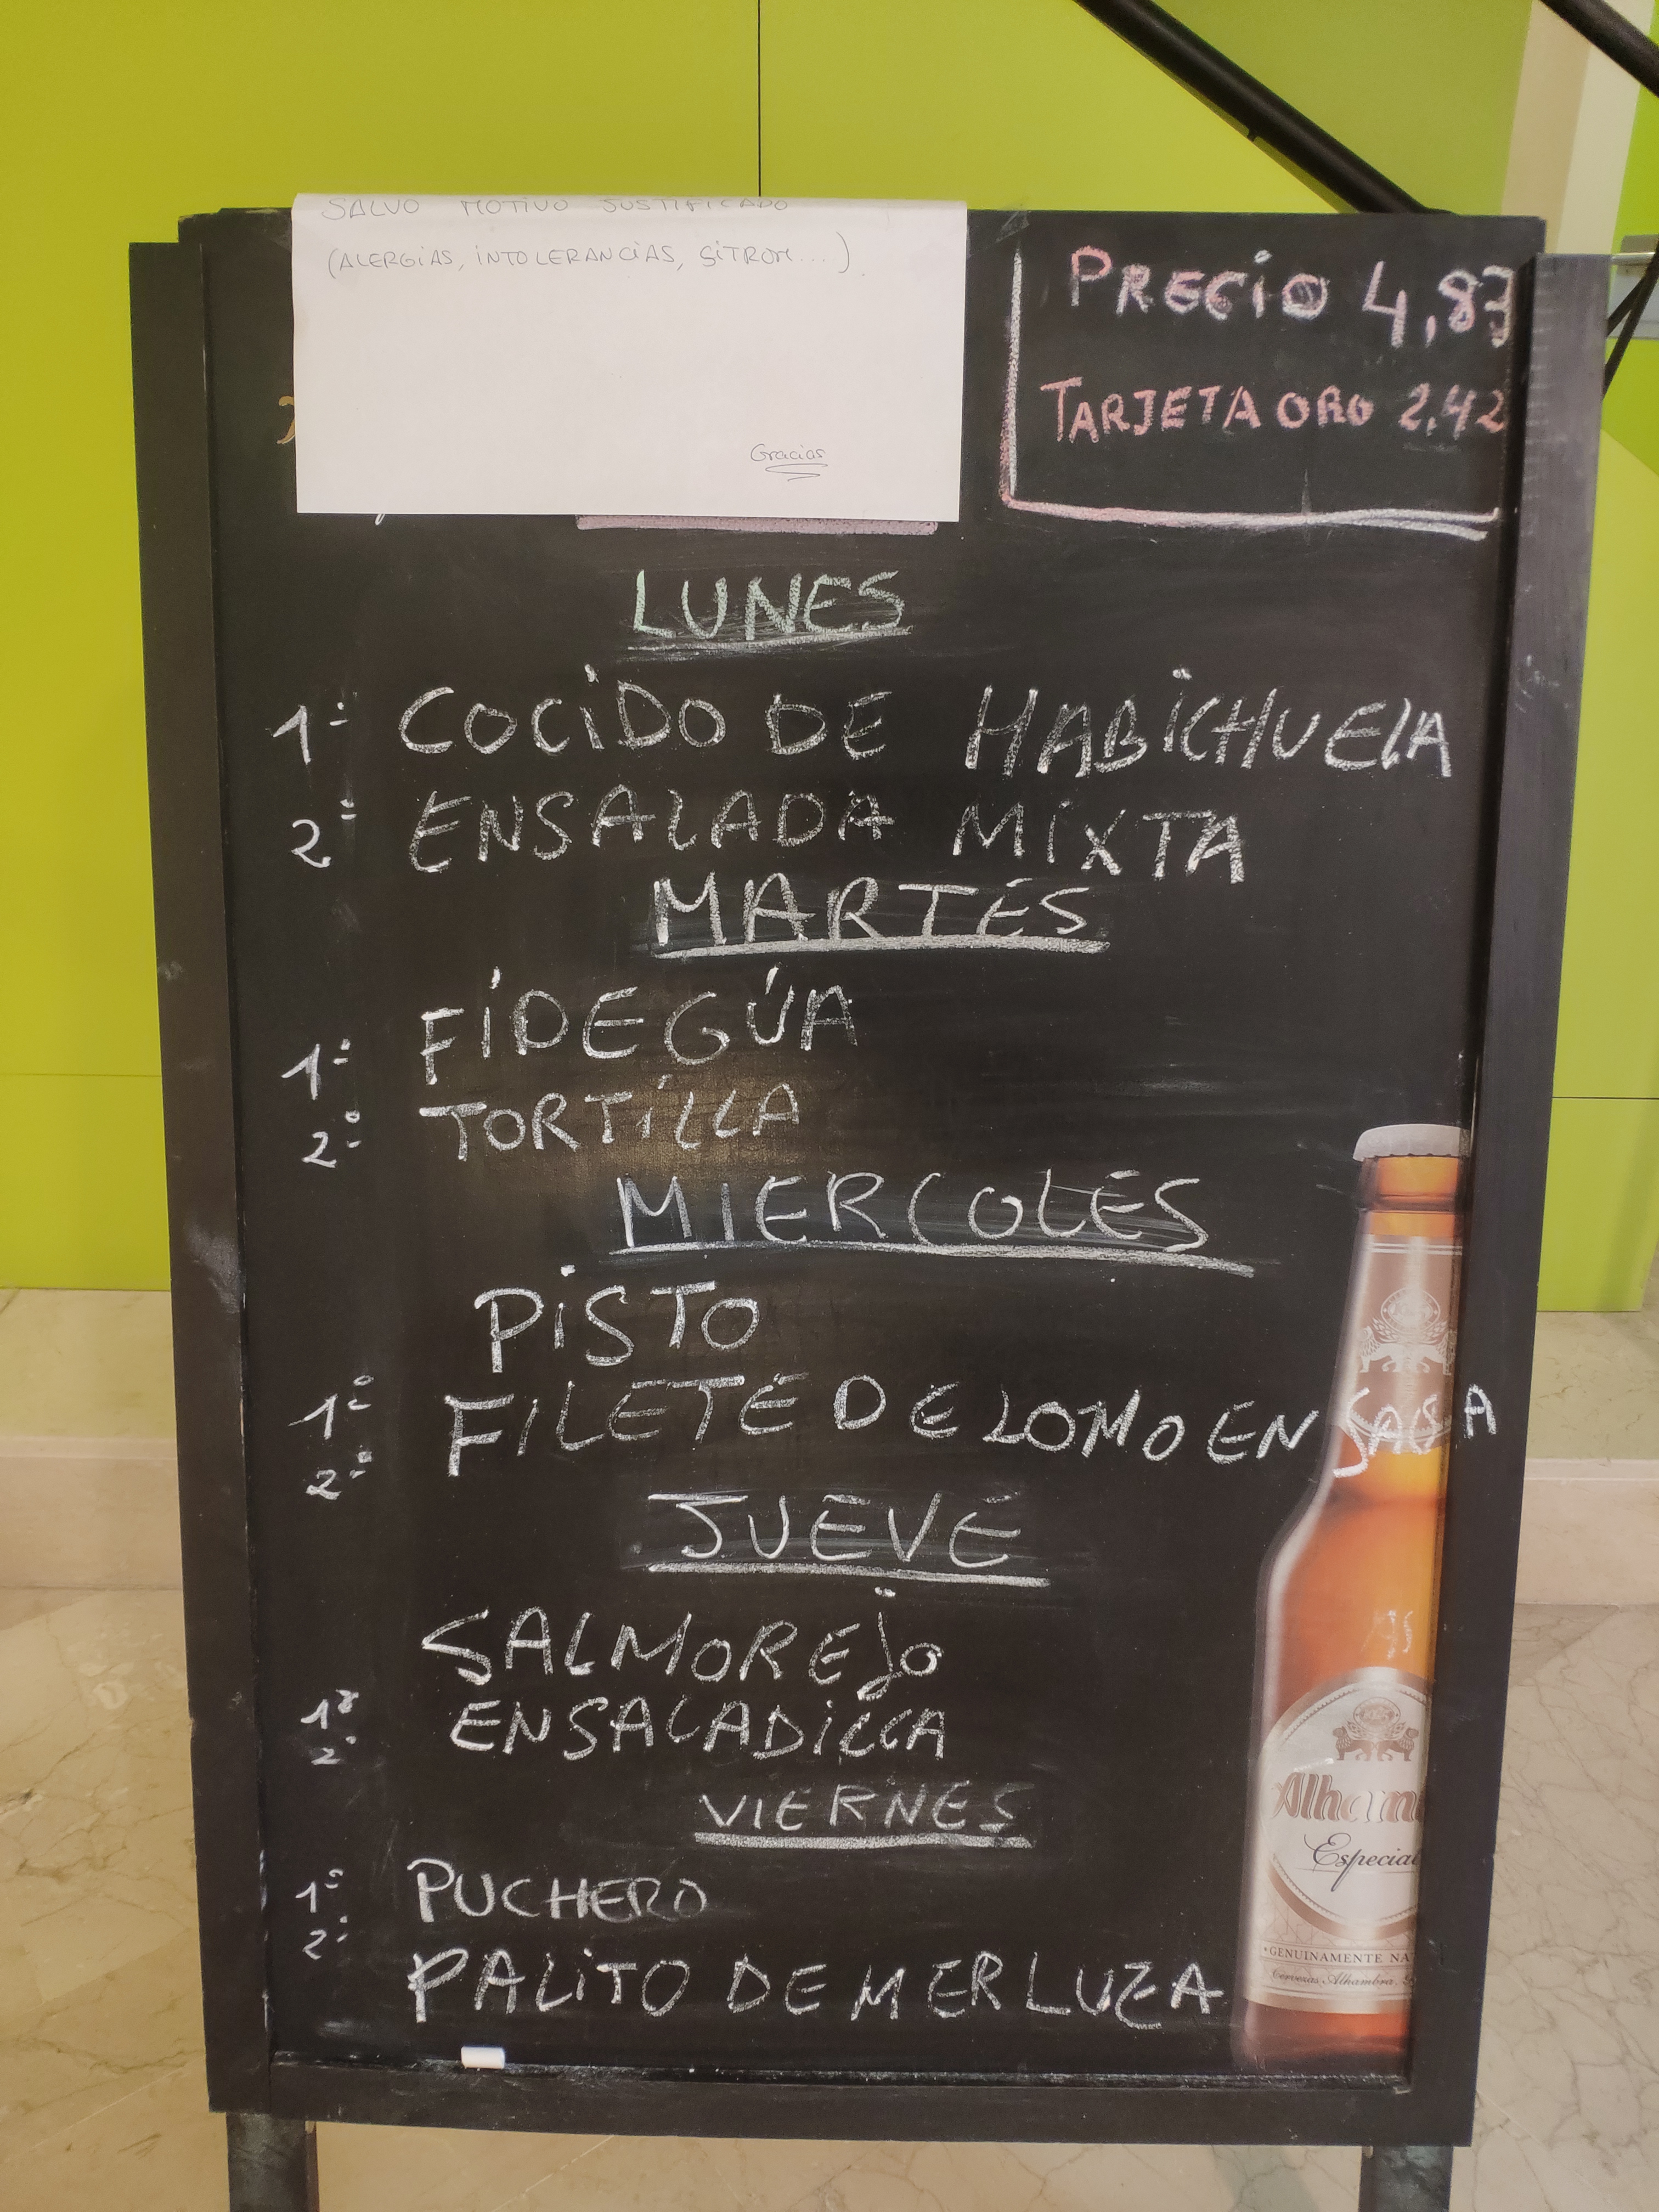 SALVO MOTIVO JUSTIFICADO
(ALERGIAS, INTOLERANCIAS, SITROM...).
Gracias
PRECIO 4,83
TARJETA ORO 2,42
LUNES
1º COCIDO DE HABICHUELA
2º ENSALADA MIXTA
MARTES
1º FIDEGÚA
2º TORTILLA
MIERCOLES
1º PISTO
2º FILETE DE LOMO EN SALSA
JUEVE
1º SALMOREJO
2º ENSALADILLA
VIERNES
1º PUCHERO
2º PALITO DE MERLUZA
Alham
Especial
GENUINAMENTE NA
Cervezas Alhambra,